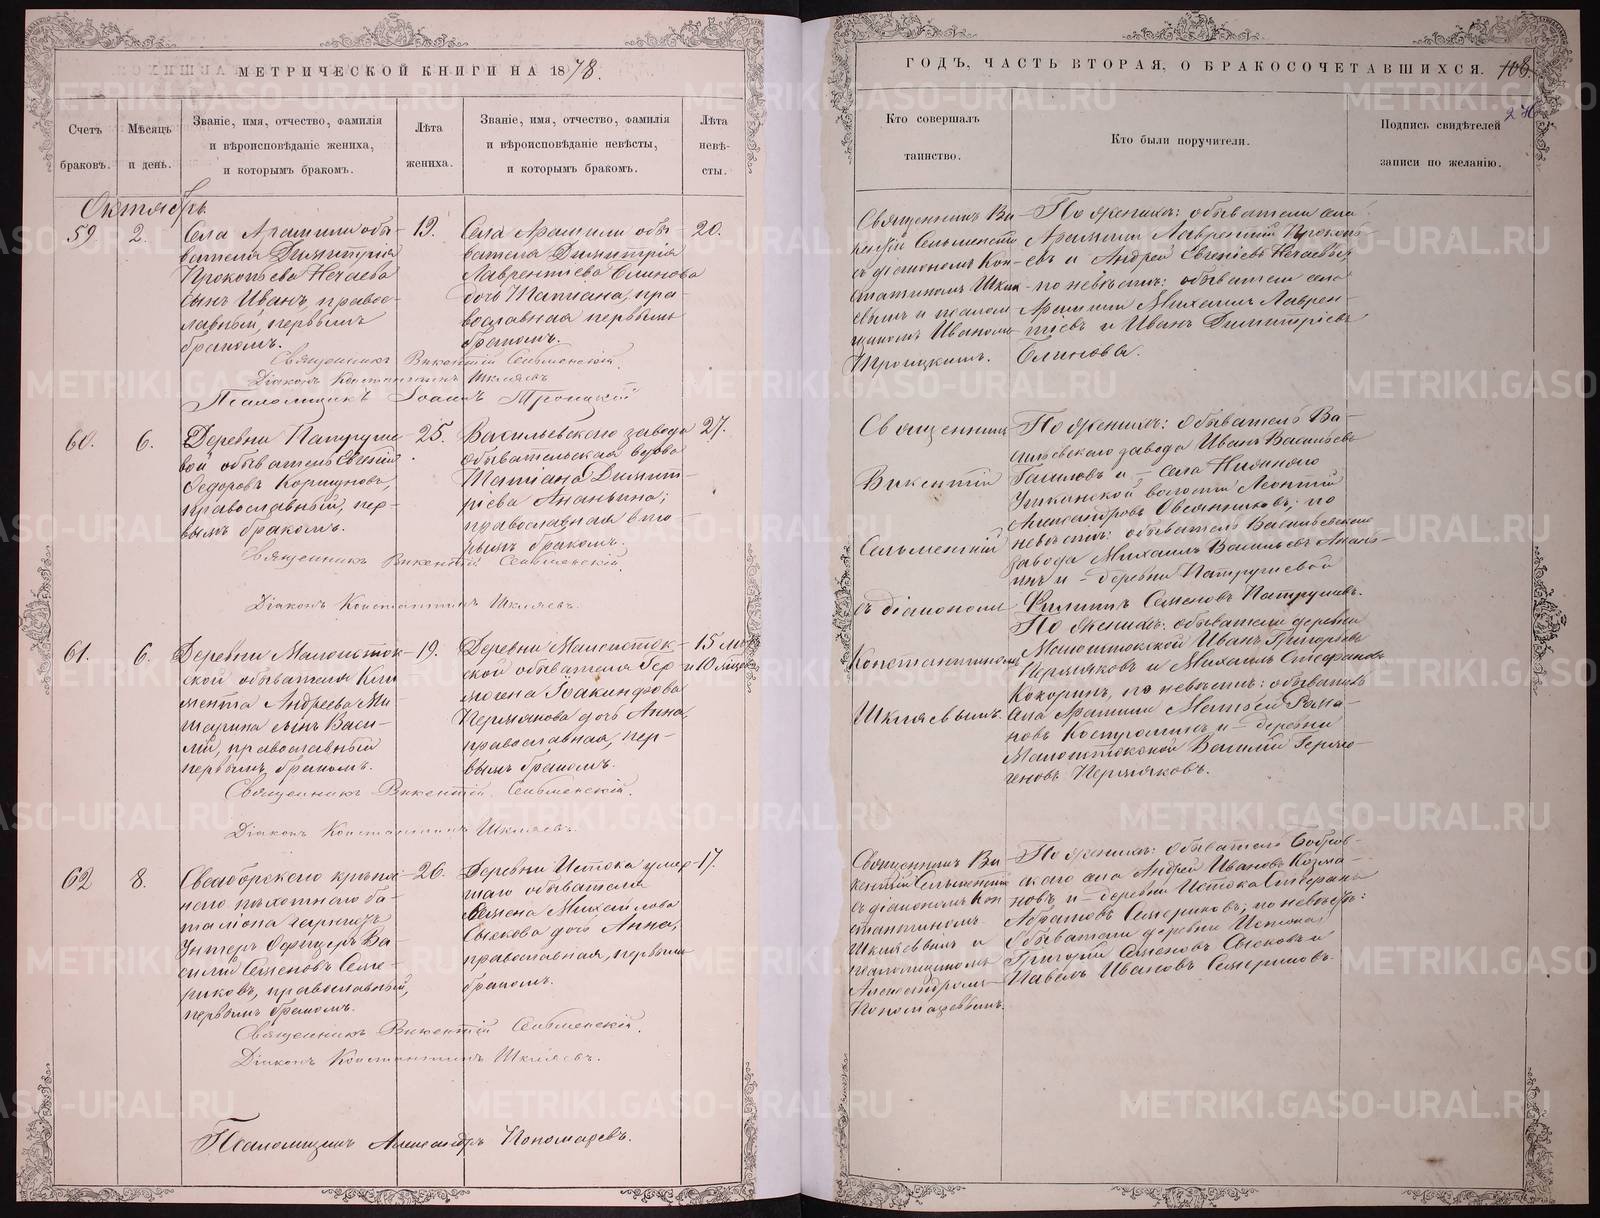 МЕТРИЧЕСКОЙ КНИГИ НА 1878.
Счетъ браковъ.
Мѣсяцъ и день.
Званіе, имя, отчество, фамилія и вѣроисповѣданіе жениха, и которымъ бракомъ.
Лѣта жениха.
Званіе, имя, отчество, фамилія и вѣроисповѣданіе невѣсты, и которымъ бракомъ.
Лѣта невѣсты.
Октябрь.
59
2.
Села Арамили обы-
вателя Димитрія
Прокопьева Нечаева
сынъ Иванъ, правос-
лавный, первымъ
бракомъ.
19.
Села Арамили обы-
вателя Димитрія
Лаврентіева
дочь Татіана, пра-
вославная первымъ
бракомъ.
20.
Священникъ Викентій Сельменскій.
Діаконъ Константинъ Шкляевъ
Псаломщикъ Іоаннъ Троицкій
60.
6.
Деревни Патруше-
вой обыватель Евгеній
Федоровъ Коршуновъ,
православный, пер-
вымъ бракомъ.
25.
Васильевского завода
обывательская вдова
Татіана Димит-
ріева Ананьина;
православная вто-
рымъ бракомъ.
27.
Священникъ Викентій Сельменскій.
Діаконъ Константинъ Шкляевъ.
61.
6.
Деревни Малоисток-
ской обывателя Кли
мента Андреева
сынъ Васи-
лій, православный
первымъ бракомъ.
19.
Деревни Малоисток-
ской обывателя Гер-
могена Іоакинфова
Пермякова дочь Анна,
православная, пер-
вымъ бракомъ.
15 лѣтъ
и 10 мѣсяц
Священникъ Викентій Сельменскій.
Діаконъ Константинъ Шкляевъ.
62
8.
Свеаборского крѣпос-
наго пѣхотнаго ба-
таліона
Унтеръ Офицеръ Ва-
силій Семеновъ Семе-
риковъ, православный,
первымъ бракомъ.
26.
Деревни Истока умер-
шаго обывателя
Семена Михайлова
Сыскова дочь Анна,
православная, первымъ
бракомъ.
17.
Священникъ Викентій Сельменскій.
Діаконъ Константинъ Шкляевъ.
Псаломщикъ Александръ Пономаревъ.
ГОДЪ, ЧАСТЬ ВТОРАЯ, О БРАКОСОЧЕТАВШИХСЯ.
108
Кто совершалъ таинство.
Кто были поручители.
Подпись свидѣтелей записи по желанію.
Священникъ Ви-
кентій Сельменскій
съ діакономъ Кон-
стантиномъ Шкля-
евымъ и псалом
щикомъ Іоанномъ
Троицкимъ.
По женихѣ: обыватели села
Арамили Лаврентій Прокопь-
евъ и Андрей Евгеніевъ Нечаевы;
по невѣстѣ: обыватели села
Арамили Михаилъ Лаврен-
тіевъ и Иванъ Димитріевъ
Священникъ
Викентій
Сельменскій
съ діакономъ
Константиномъ
Шкляевымъ.
По женихѣ: обыватель Ва-
сильевскаго завода Иванъ Васильевъ
и села
волости Леонтій
Александровъ Овсянниковъ; по
невѣстѣ: обыватель Васильевскаго
завода Михаилъ Васильевъ Анань-
инъ и деревни Патрушевой
Филиппъ Семеновъ Патрушевъ.
По женихѣ: обыватели деревни
Малоистокской Иванъ Григорьевъ
Пермяковъ и Михаилъ Стефановъ
Кокоринъ, по невѣстѣ: обыватель
села Арамили Матвей Рома-
новъ Костроминъ и деревни
Малоистокской Василій Гермо-
геновъ Пермяковъ.
Священникъ Ви-
кентій Сельменскій
съ діакономъ Кон
стантиномъ
Шкляевымъ и
псаломщикомъ
Александромъ
Пономаревымъ.
По женихѣ: обыватель Бобров-
скаго села Андрей Ивановъ Козма-
новъ и деревни Истока Стефанъ
Абрамовъ Семериковъ; по невѣстѣ:
обыватели деревни Истока:
Григорій Семеновъ Сысковъ и
Павелъ Ивановъ Семериковъ.
METRIKI.GASO-URAL.RU